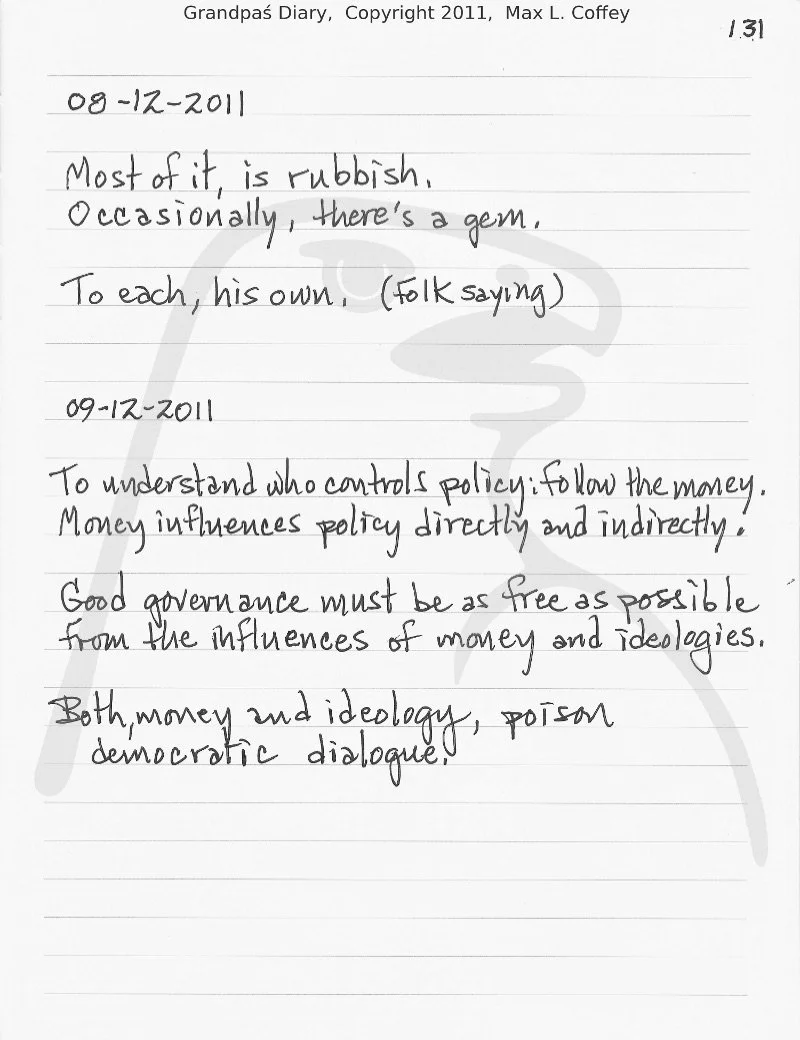 Grandpaś Diary, Copyright 2011, Max L. Coffey
131
08-12-2011
Most of it, is rubbish.
Occasionally, there's a gem.
To each, his own. (Folk saying)
09-12-2011
To understand who controls policy: follow the money.
Money influences policy directly and indirectly.
Good governance must be as free as possible
from the influences of money and ideologies.
Both, money and ideology, poison
democratic dialogue.